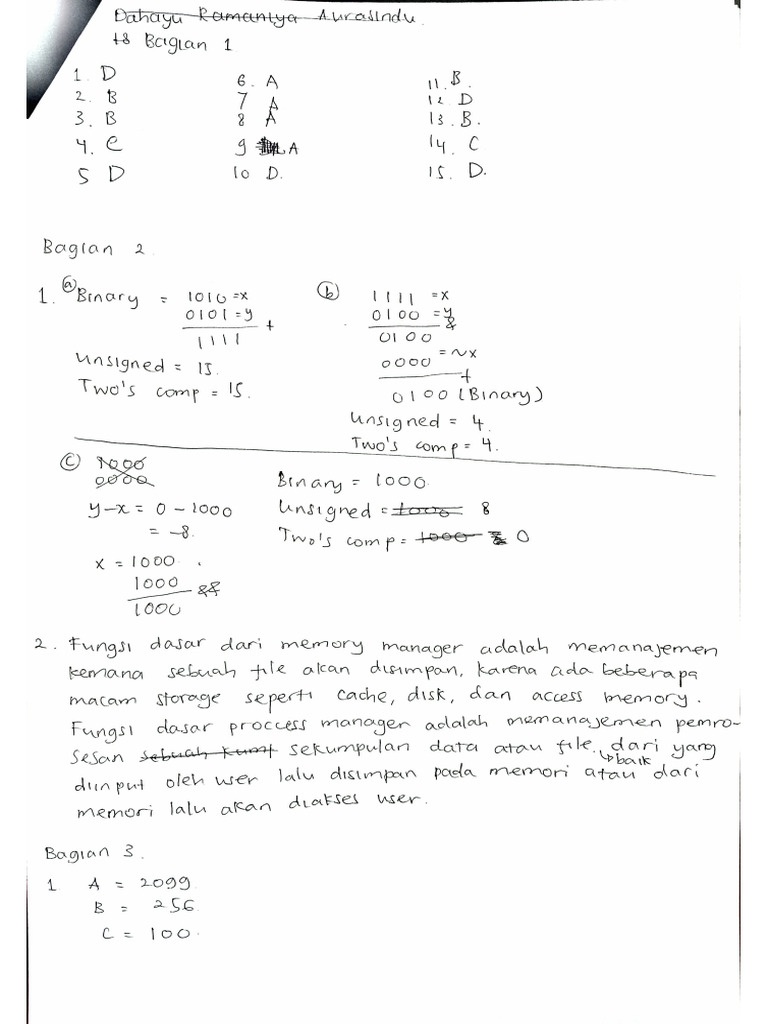 Dahayu Ramaniya Aurasindu.
+8 Bagian 1
1. D
2. B
3. B
4. C
5 D
6. A
7 A
8 A
9 A
10 D.
11. B.
12 D
13. B.
14. C
15. D.
Bagian 2
1. ⓐ Binary = 1010 = x
0101 = y
+
1111
Unsigned = 15.
Two's comp = 15.
ⓑ 1111 = x
0100 = y
&
0100
0000 = ~x
+
0100 (Binary)
Unsigned = 4.
Two's comp = 4.
ⓒ 1000
0000
y-x = 0 - 1000
= -8.
x = 1000.
1000
&&
1000
Binary = 1000.
Unsigned = 1000 8
Two's comp = 1000 0
2. Fungsi dasar dari memory manager adalah memanajemen
kemana sebuah file akan disimpan, karena ada beberapa
macam storage seperti cache, disk, dan access memory.
Fungsi dasar proccess manager adalah memanajemen pemro-
sesan sebuah sekumpulan data atau file, baik dari yang
diinput oleh user lalu disimpan pada memori atau dari
memori lalu akan diakses user.
Bagian 3.
1 A = 2099
B = 256
C = 100.